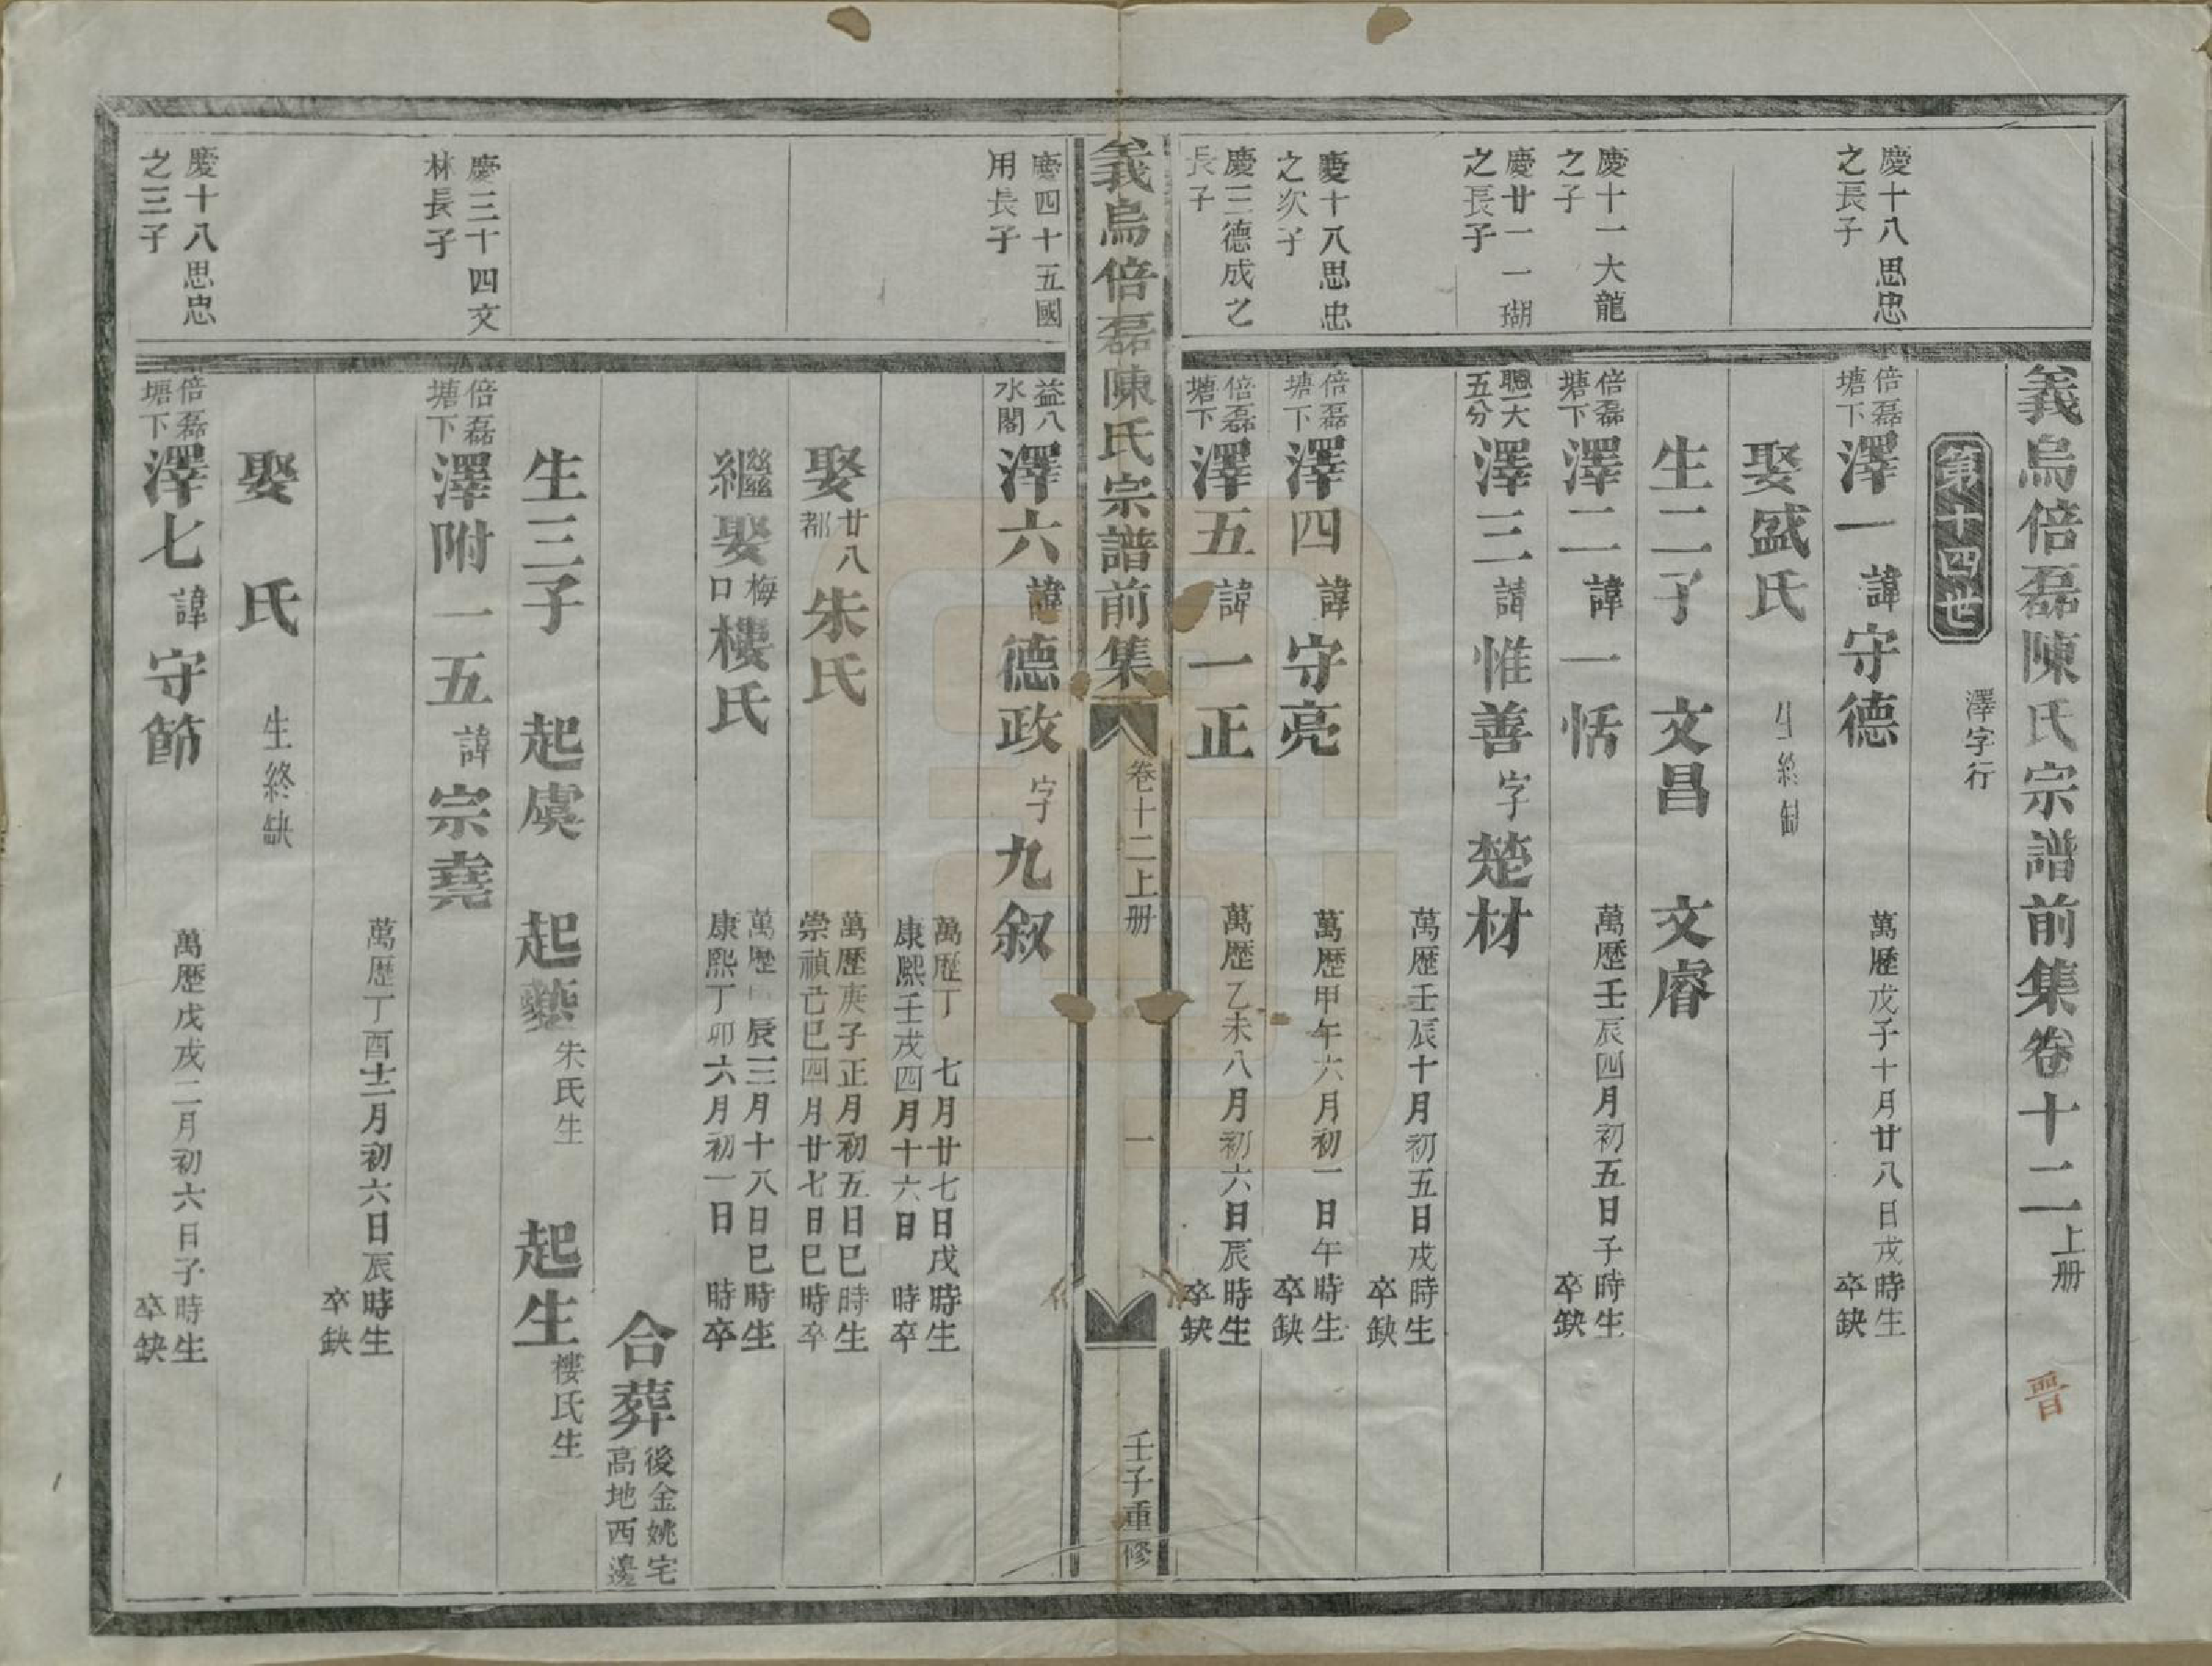 義烏倍磊陳氏宗譜前集卷十二上册
晋
第十四世
澤字行
慶十八思忠
之長子
倍磊
塘下
澤一諱守德
萬歷戊子十月廿八日戌時生
卒缺
娶盛氏
生終缺
生二子 文昌 文睿
慶十一大龍
之子
倍磊
塘下
澤二諱一恬
萬歷壬辰四月初五日子時生
卒缺
慶廿一一瑚
之長子
聰一大
五分
澤三諱惟善字楚材
萬歷壬辰十月初五日戌時生
卒缺
慶十八思忠
之次子
倍磊
塘下
澤四諱守亮
萬歷甲午六月初一日午時生
卒缺
慶三德成之
長子
倍磊
塘下
澤五諱一正
萬歷乙未八月初六日辰時生
卒缺
義烏倍磊陳氏宗譜前集
卷十二上册
一
壬子重修
慶四十五國
用長子
益八
水閣
澤六諱德政字九叙
萬歷丁 七月廿七日戌時生
康熙壬戌四月十六日 時卒
娶廿八
都
朱氏
萬歷庚子正月初五日巳時生
崇禎己巳四月廿七日巳時卒
繼娶梅
口
樓氏
萬歷 辰三月十八日巳時生
康熙丁卯六月初一日 時卒
合葬後金姚宅
高地西邊
生三子 起虞 起藝朱氏生 起生樓氏生
慶三十四文
林長子
倍磊
塘下
澤附一五諱宗堯
萬歷丁酉十二月初六日辰時生
卒缺
娶 氏
生終缺
慶十八思忠
之三子
倍磊
塘下
澤七諱守節
萬歷戊戌二月初六日子時生
卒缺